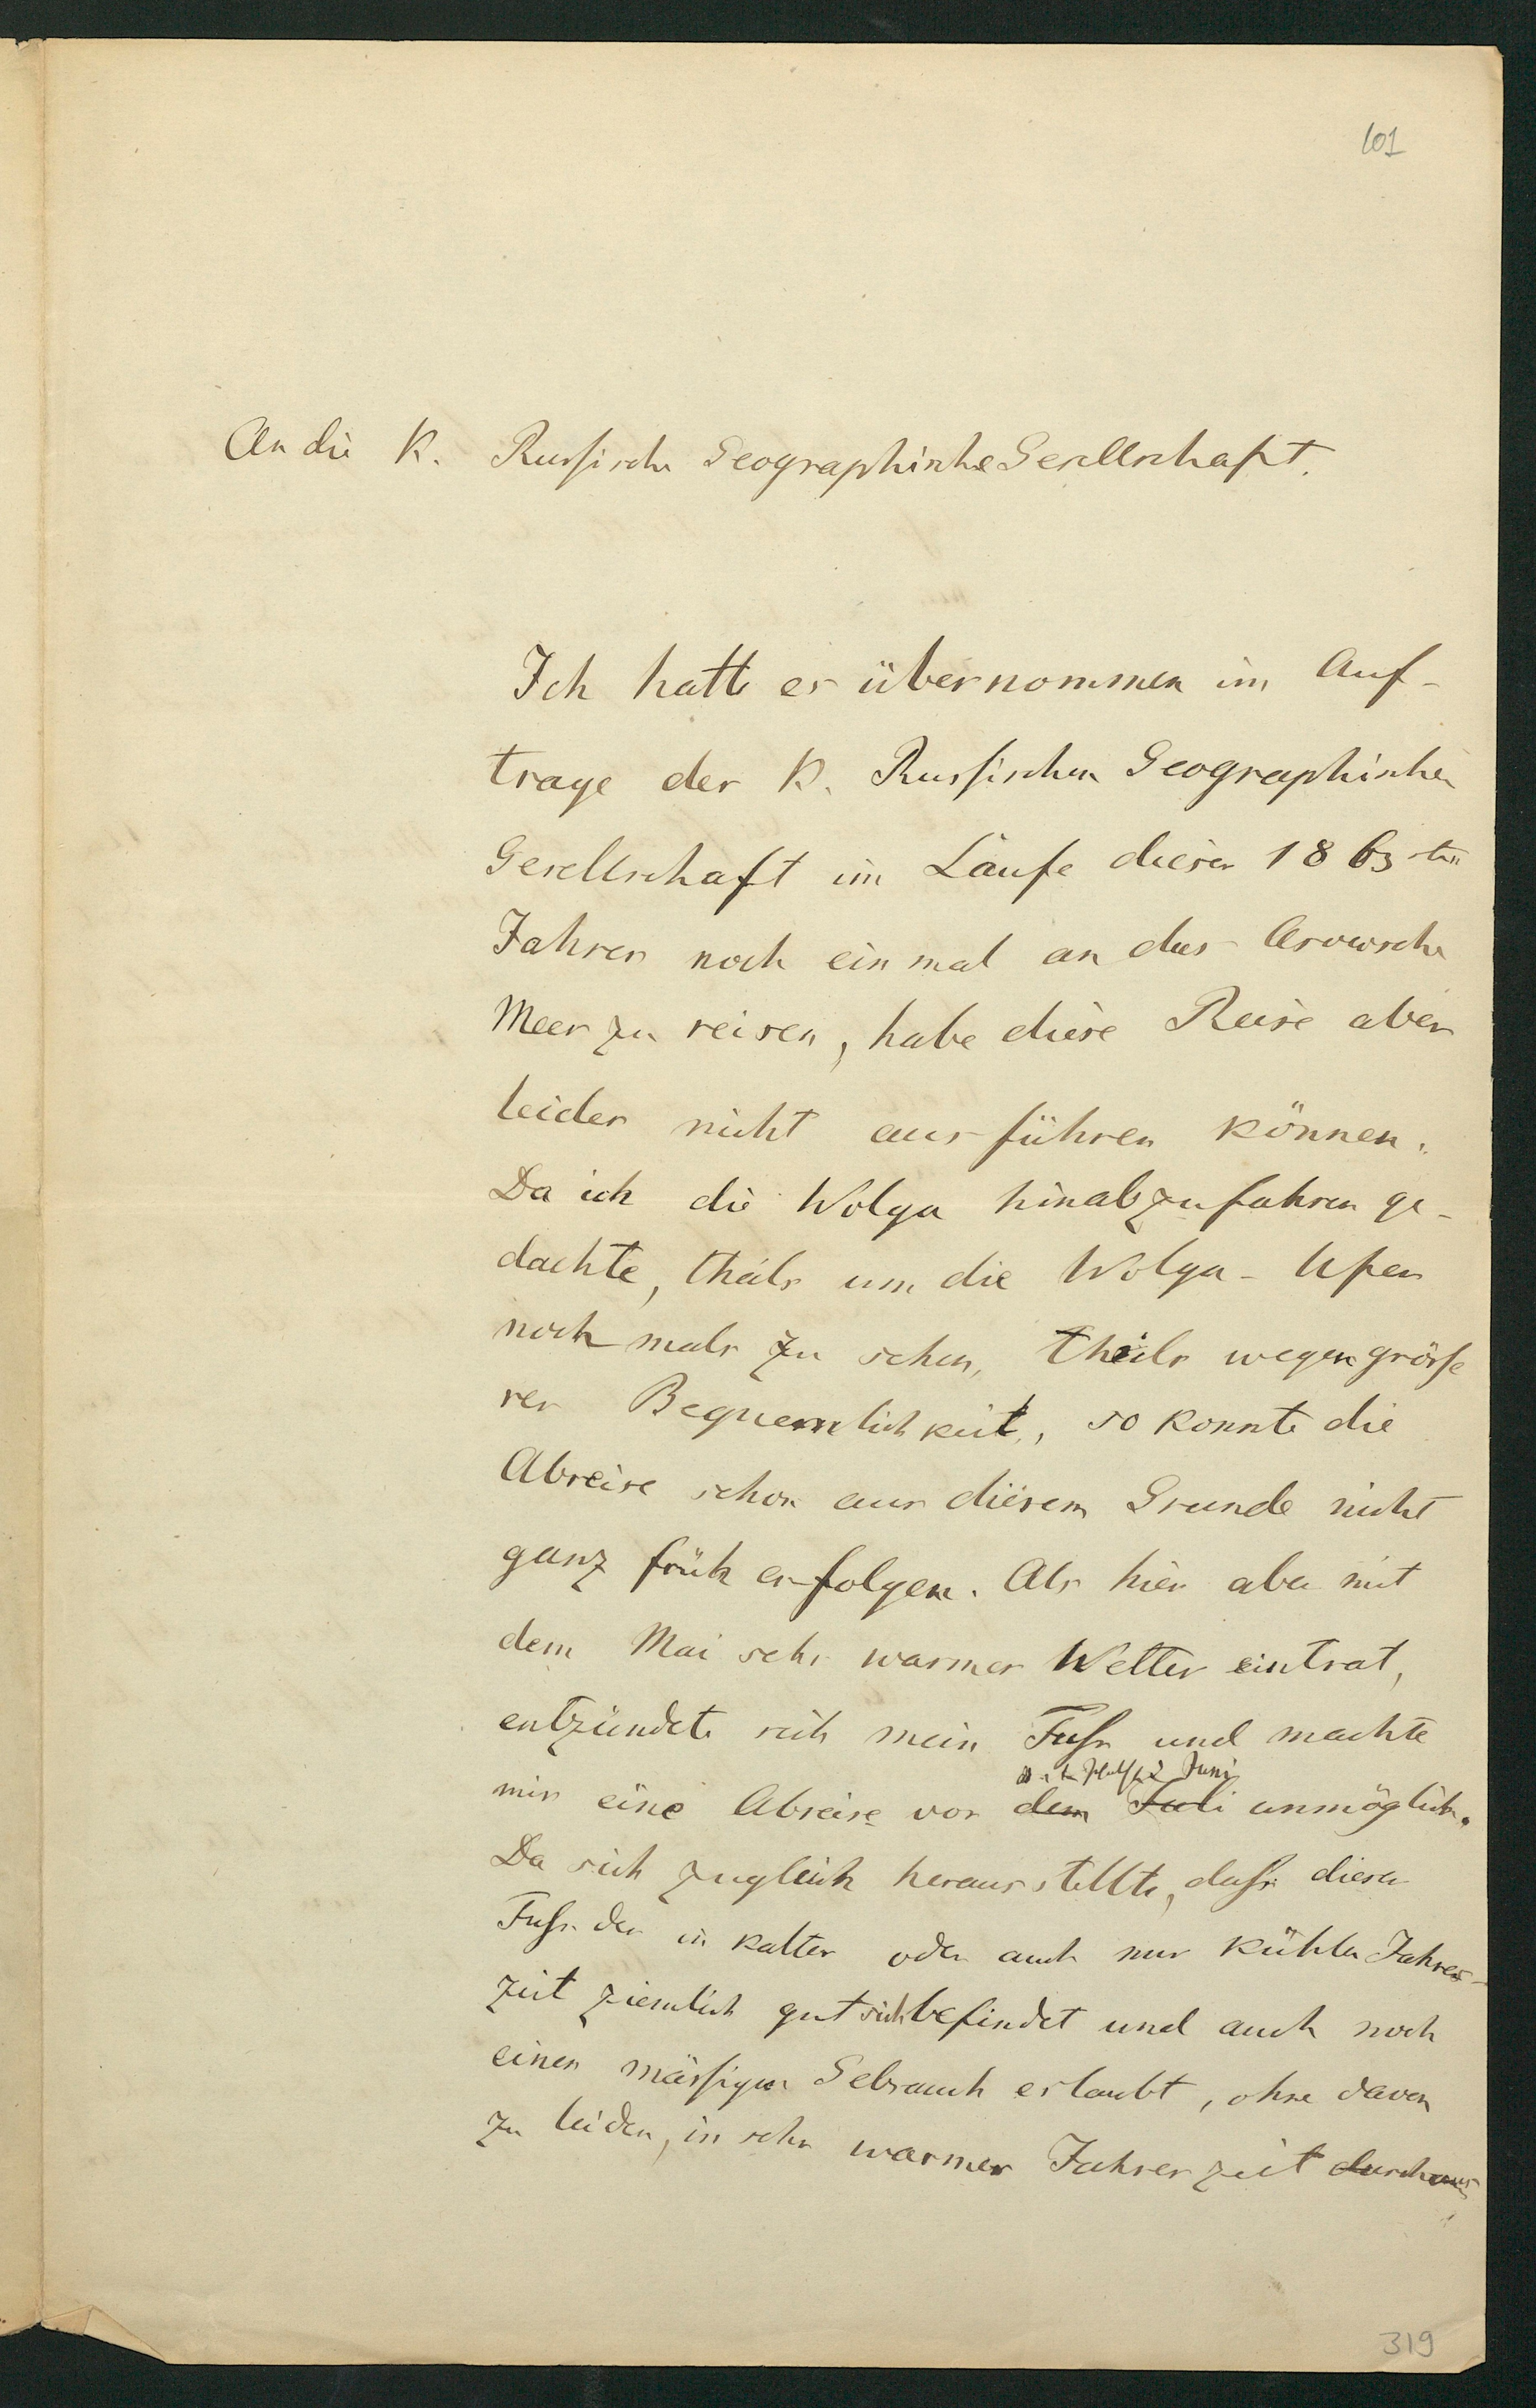 101
An die K. Russische Geographische Gesellschaft.
Ich hatte es übernommen im Auf-
trage der K. Russischen Geographischen
Gesellschaft im Laufe dieses 1863sten
Jahres noch einmal an das Asowsche
Meer zu reisen, habe diese Reise aber
leider nicht ausführen können.
Da ich die Wolga hinabzufahren ge-
dachte, theils um die Wolga-Ufer
nochmals zu sehen, theils wegen grösse
rer Bequemlichkeit, so konnte die
Abreise schon aus diesem Grunde nicht
ganz früh erfolgen. Als hier aber mit
dem Mai sehr warmes Wetter eintrat,
entzündete sich mein Fuss und machte
Juni
mir eine Abreise vor dem Juli unmöglich.
Da sich zugleich herausstellte, dass dieser
Fuss der in kalter oder auch nur kühler Jahres-
zeit ziemlich gut sich befindet und auch noch
einen mässigen Gebrauch erlaubt, ohne davon
zu leiden, in sehr warmer Jahreszeit durchaus
319